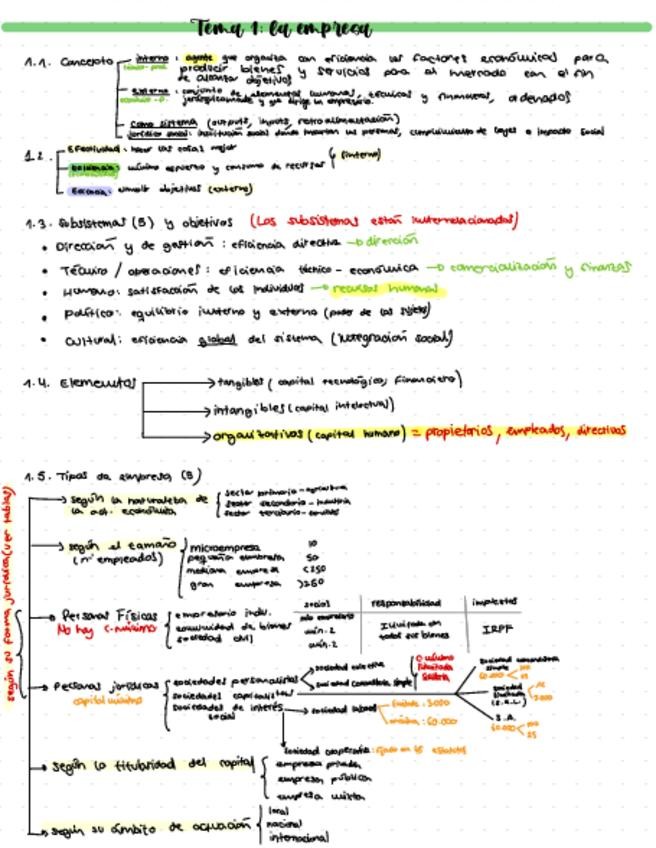 Tema 1: la empresa
1.1. Concepto
interno: agente que organiza con eficiencia los factores económicos para
producir bienes y servicios para el mercado con el fin
de alcanzar objetivos
externo: conjunto de elementos humanos, técnicos y financieros, ordenados
jerárquicamente y que dirige un empresario.
como sistema (outputs, inputs, retroalimentación)
jurídico social: institución social donde las personas, cumplimiento de leyes e impacto social
1.2.
Efectividad: hacer las cosas mejor
Eficiencia: mínimo esfuerzo y consumo de recursos (interno)
Eficacia: cumplir objetivos (externo)
1.3. Subsistemas (5) y objetivos (Los subsistemas están interrelacionados)
• Dirección y de gestión: eficiencia directiva → dirección
• Técnico / operaciones: eficiencia técnico-económica → comercialización y finanzas
• Humano: satisfacción de los individuos → recursos humanos
• Político: equilibrio interno y externo (poder de los sujetos)
• Cultural: eficiencia global del sistema (integración social)
1.4. Elementos
→ tangibles (capital tecnológico, financiero)
→ intangibles (capital intelectual)
→ organizativos (capital humano) = propietarios, empleados, directivos
1.5. Tipos de empresa (5)
según su forma jurídica (ver tablas)
→ según la naturaleza de
la act. económica
sector primario - agricultura
sector secundario - industria
sector terciario - servicios
→ según el tamaño
(nº empleados)
microempresa 10
pequeña empresa 50
mediana empresa <250
gran empresa >250
→ Personas Físicas
No hay c. mínimo
empresario indiv.
comunidad de bienes
sociedad civil
social responsabilidad impuestos
mín. 2
mín. 2
Ilimitada en
todos sus bienes
IRPF
→ Personas jurídicas
capital mínimo
sociedades personalistas
sociedades capitalistas
sociedades de interés
social
→ sociedad colectiva
→ sociedad comanditaria simple
0 mínimo
Sociedad comanditaria
simple
60.000
Sociedad
limitada
(S.R.L)
3000
S.A.
60.000
→ sociedad laboral
limitada: 3000
anónima: 60.000
sociedad cooperativa: fijado en los estatutos
→ según la titularidad del capital
empresa privada
empresa pública
empresa mixta
→ según su ámbito de actuación
local
nacional
internacional